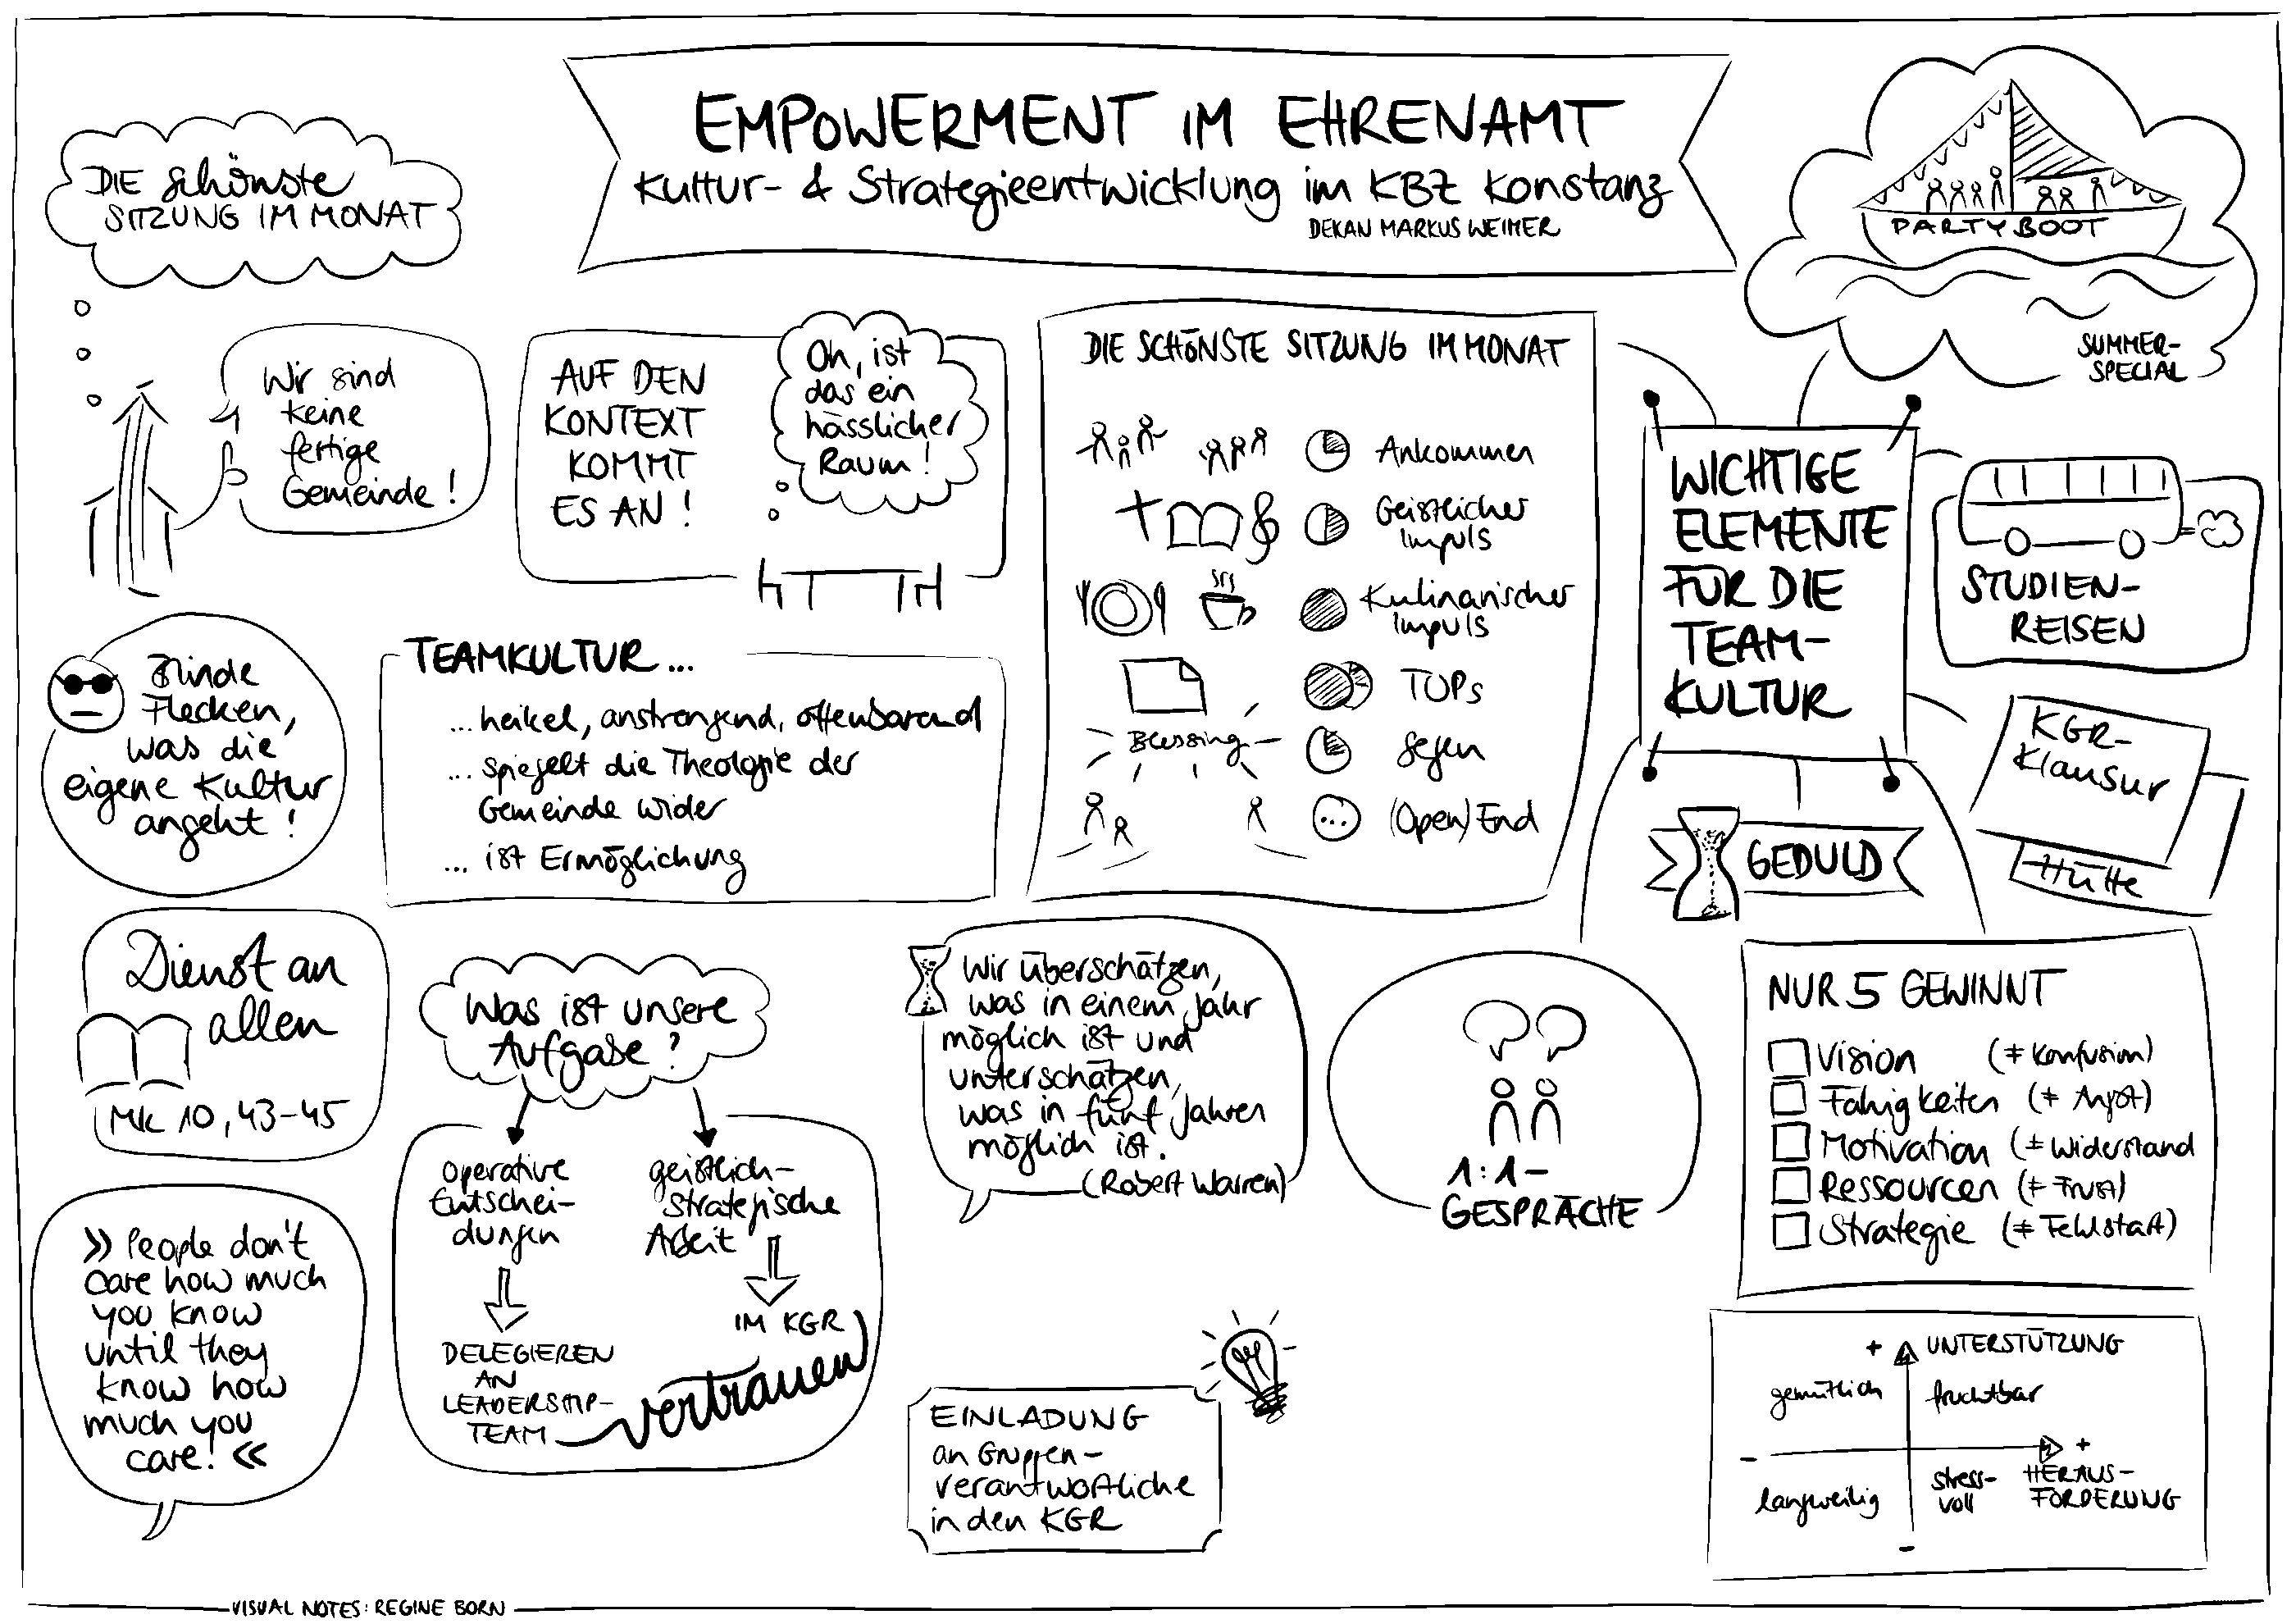 EMPOWERMENT IM EHRENAMT
Kultur- & Strategieentwicklung im KBZ Konstanz
DEKAN MARKUS WEIMER
DIE schönste
SITZUNG IM MONAT
PARTYBOOT
SUMMER-
SPECIAL
Wir sind
keine
fertige
Gemeinde!
AUF DEN
KONTEXT
KOMMT
ES AN!
Oh, ist
das ein
hässlicher
Raum!
DIE SCHÖNSTE SITZUNG IM MONAT
Ankommen
Geistlicher
Impuls
Kulinarischer
Impuls
TOPs
Blessing
Segen
(Open) End
WICHTIGE
ELEMENTE
FÜR DIE
TEAM-
KULTUR
STUDIEN-
REISEN
KGR-
Klausur
Hütte
GEDULD
Blinde
Flecken,
was die
eigene Kultur
angeht!
TEAMKULTUR...
... heikel, anstrengend, offenbarend
... spiegelt die Theologie der
Gemeinde wider
... ist Ermöglichung
Dienst an
allen
Mk 10, 43-45
Was ist unsere
Aufgabe?
operative
Entschei-
dungen
DELEGIEREN
AN
LEADERSHIP-
TEAM
geistlich-
strategische
Arbeit
IM KGR
vertrauen
Wir überschätzen,
was in einem Jahr
möglich ist und
unterschätzen,
was in fünf Jahren
möglich ist.
(Robert Warren)
1:1-
GESPRÄCHE
NUR 5 GEWINNT
Vision (≠ Konfusion)
Fähigkeiten (≠ Angst)
Motivation (≠ Widerstand
Ressourcen (≠ Frust)
Strategie (≠ Fehlstart)
» People don't
care how much
you know
until they
know how
much you
care! «
EINLADUNG
an Gruppen-
verantwortliche
in den KGR
+ UNTERSTÜTZUNG
gemütlich
fruchtbar
- +
langweilig
stress-
voll
HERAUS-
FORDERUNG
-
VISUAL NOTES: REGINE BORN